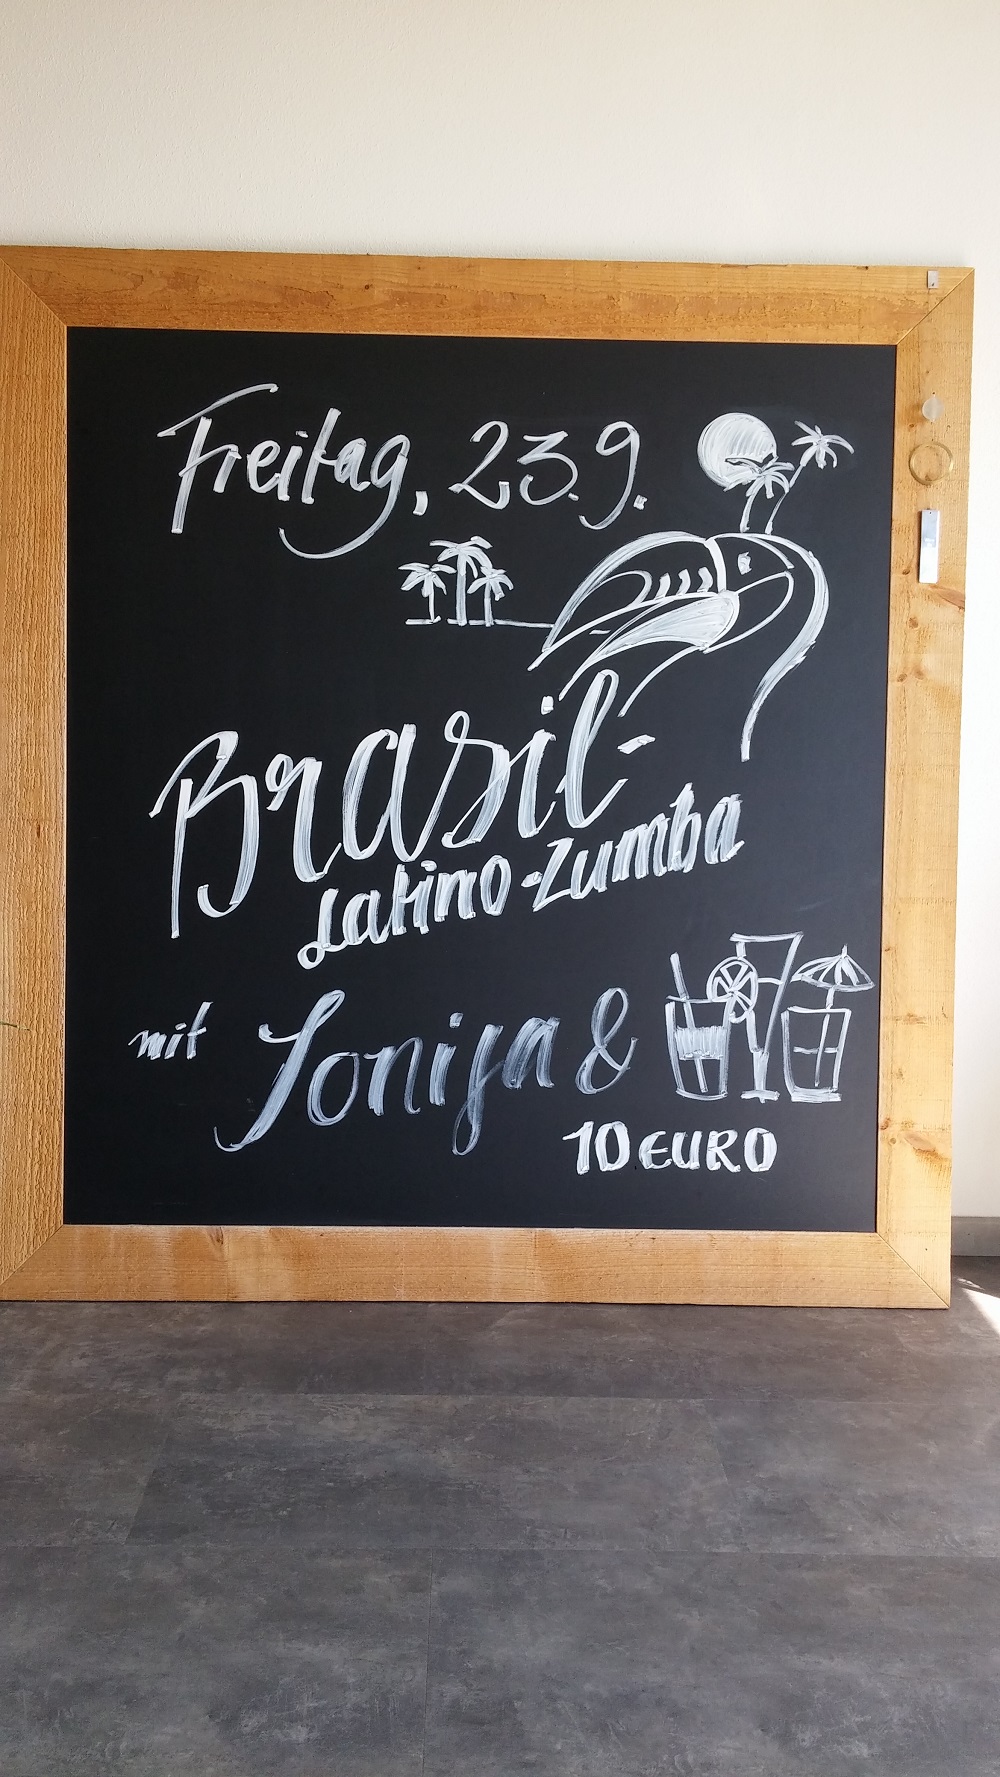 Freitag, 23.9.
Brasil-
Latino-Zumba
mit Sonija &
10 EURO